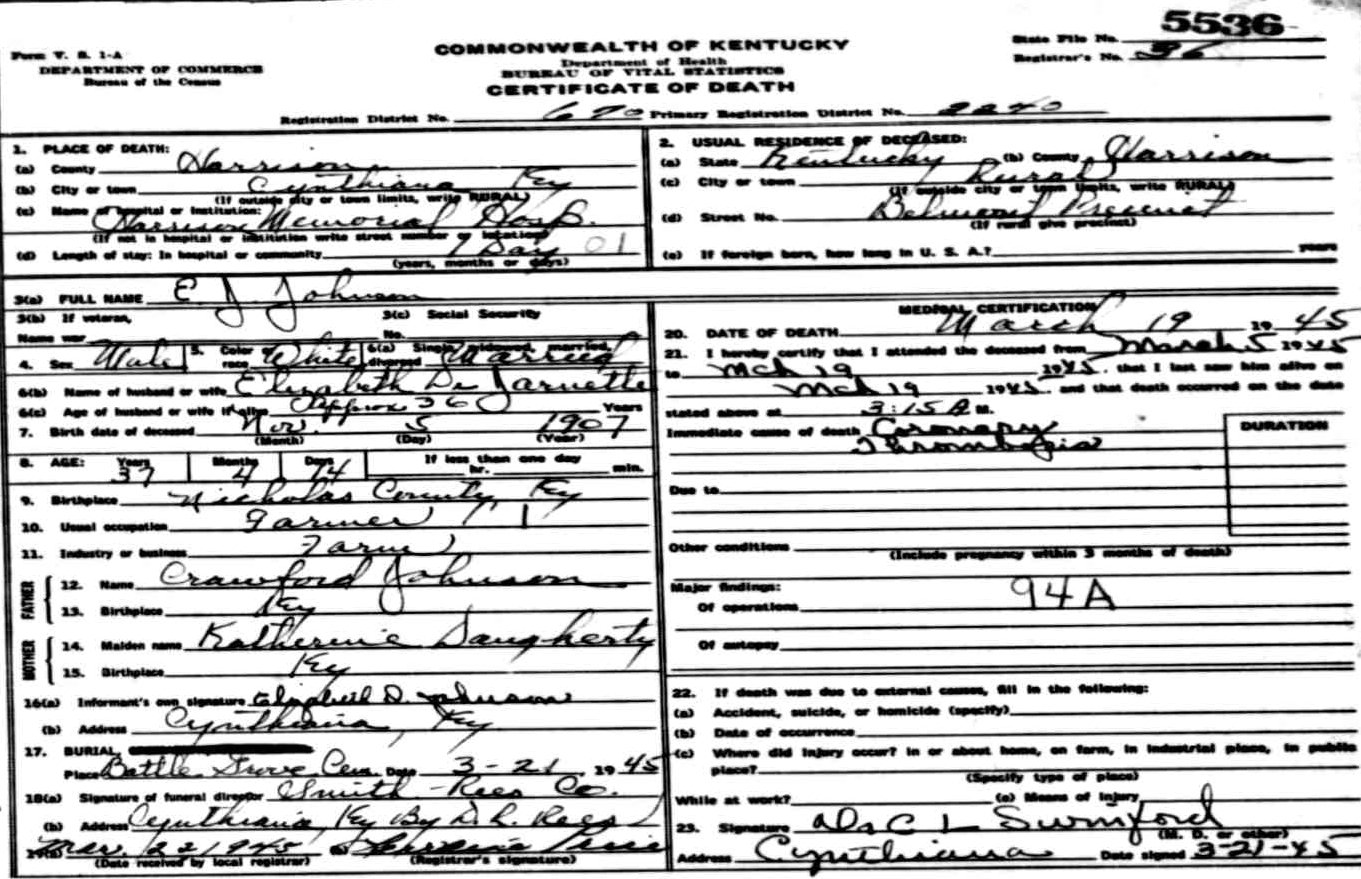 5536
Form V. S. 1-A
DEPARTMENT OF COMMERCE
Bureau of the Census
COMMONWEALTH OF KENTUCKY
Department of Health
BUREAU OF VITAL STATISTICS
CERTIFICATE OF DEATH
State File No.
Registrar's No. 36
Registration District No. 690 Primary Registration District No. 2240
1. PLACE OF DEATH:
(a) County Harrison
(b) City or town Cynthiana Ky
(If outside city or town limits, write RURAL)
(c) Name of hospital or institution:
Harrison Memorial Hosp.
(If not in hospital or institution write street number or location)
(d) Length of stay: In hospital or community 1 Day 01
(years, months or days)
2. USUAL RESIDENCE OF DECEASED:
(a) State Kentucky (b) County Harrison
(c) City or town Rural
(If outside city or town limits, write RURAL)
(d) Street No. Belmont Precinct
(If rural give precinct)
(e) If foreign born, how long in U. S. A.? years
3(a) FULL NAME E. J. Johnson
3(b) If veteran, 3(c) Social Security
Name war No.
4. Sex Male 5. Color or race White 6(a) Single, widowed, married, divorced Married
6(b) Name of husband or wife Elizabeth De Jarnette
6(c) Age of husband or wife if alive Approx 36 Years
7. Birth date of deceased Nov. 5 1907
(Month) (Day) (Year)
8. AGE: Years Months Days If less than one day
37 4 14 hr. min.
9. Birthplace Nicholas County, Ky
10. Usual occupation Farmer
11. Industry or business Farm
FATHER
12. Name Crawford Johnson
13. Birthplace Ky
MOTHER
14. Maiden name Katherine Daugherty
15. Birthplace Ky
16(a) Informant's own signature Elizabeth D. Johnson
(b) Address Cynthiana, Ky
17. BURIAL,
Place Battle Grove Cem. Date 3-21 1945
18(a) Signature of funeral director Smith-Rees Co.
(b) Address Cynthiana, Ky By D. R. Rees
19(a) Mar. 22 1945
(Date received by local registrar) (Registrar's signature)
MEDICAL CERTIFICATION
20. DATE OF DEATH March 19 1945
21. I hereby certify that I attended the deceased from March 5 1945
to Mch 19 1945, that I last saw him alive on
Mch 19 1945 and that death occurred on the date
stated above at 3:15 A M.
Immediate cause of death Coronary
Thrombosis
DURATION
Due to
Other conditions
(Include pregnancy within 3 months of death)
Major findings:
Of operations 94A
Of autopsy
22. If death was due to external causes, fill in the following:
(a) Accident, suicide, or homicide (specify)
(b) Date of occurrence
(c) Where did injury occur? In or about home, on farm, in industrial place, in public
place?
(Specify type of place)
While at work? (e) Means of Injury
23. Signature Dr C L Swinford
(M. D. or other)
Address Cynthiana Date signed 3-21-45